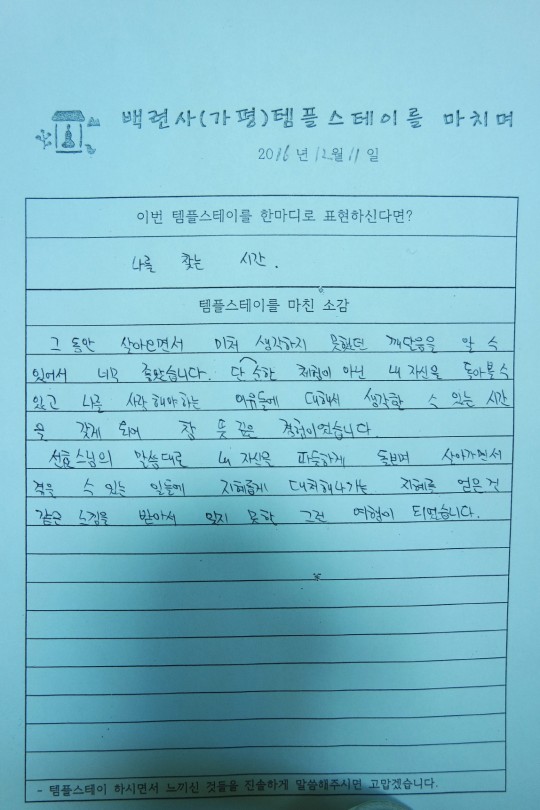 백련사(가평)템플스테이를 마치며
2016년 12월 11일
이번 템플스테이를 한마디로 표현하신다면?
나를 찾는 시간.
템플스테이를 마친 소감
그 동안 살아오면서 미처 생각하지 못했던 깨달음을 알 수
있어서 너무 좋았습니다. 단순한 체험이 아닌 내 자신을 돌아볼 수
있고 나를 사랑해야하는 이유들에 대해서 생각할 수 있는 시간
을 갖게 되어 참 뜻 깊은 경험이었습니다.
선효스님의 말씀대로 내 자신을 따듯하게 돌보며 살아가면서
겪을 수 있는 일들에 지혜롭게 대처해나가는 지혜를 얻은것
같은 느낌을 받아서 잊지 못할 그런 여행이 되었습니다.
- 템플스테이 하시면서 느끼신 것들을 진솔하게 말씀해주시면 고맙겠습니다.